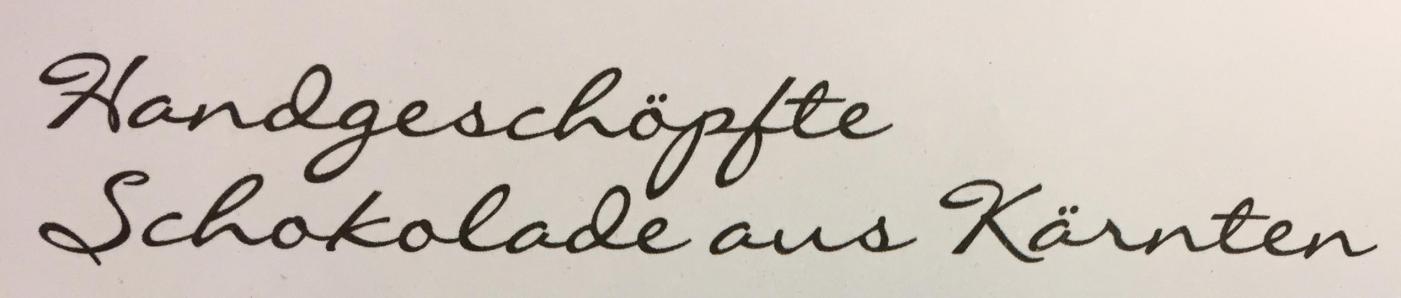 Handgeschöpfte
Schokolade aus Kärnten